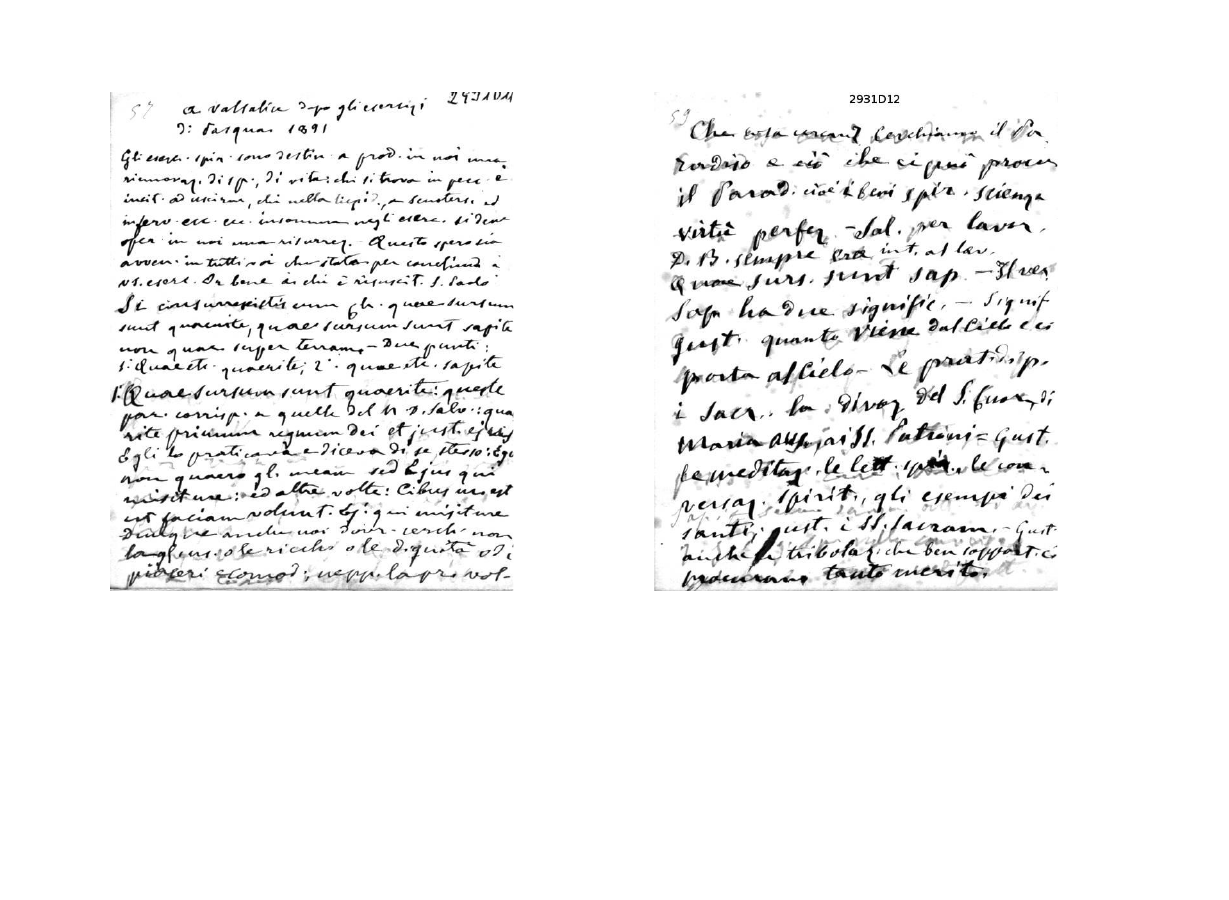 57 a Valsalice dopo gli esercizi 2931D11
di Pasqua 1891
Gli eserc. spir. sono destin. a prod. in noi una
rinnovaz. di sp., di vita: chi si trova in pecc. è
incit. ad uscirne, chi nella tiepid., a scuotersi ed
infervo. ecc. ecc. insomma negli eserc. si deve
oper. in noi una risurrez. - Questo spero sia
avven. in tutti voi che state per conchiud. i
vs. eserc. Or bene a chi è risuscit. S. Paolo
Si consurrexistis cum Ch. quae sursum
sunt quaerite, quae sursum sunt sapite
non quae super terram - Due punti:
1° Quae etc. quaerite; 2° quae etc. sapite
1. Quae sursum sunt quaerite: queste
par. corrisp. a quelle del N. D. Salv.: quae
rite primum regnum Dei et just. ejus
Egli lo praticava e diceva di se stesso: Ego
non quaero gl. meam sed Ejus qui
misit me: ed altre volte: Cibus m. est
ut faciam volunt. Ej. qui misit me
Dunque anche noi dobb. cerch. non
la gl. ns. o le ricch. o le dignità o i
piaceri e comod.; nepp. la pr. vol-
2931D12
59
Che cosa cerchiamo il Pa
radiso e ciò che ci può procur
il Parad. cioè i beni spir. scienza
virtù perfez. - Sal. per lavor.
D. B. sempre era int. al lav.
Quae surs. sunt sap. - Il ver.
Sap. ha due signific. - Signif
gust. quanto viene dal Cielo e ci
porta al Cielo - Le prat. di p.
i Sacr. la divoz. del S. Cuore, di
Maria Aus., ai SS. Patroni = Gust.
le meditaz. le lett. spir. le con-
versaz. spirit., gli esempi dei
santi; gust. i SS. Sacram. - Gust
anche le tribolaz. che ben sopport. ci
procurano tanto merito.